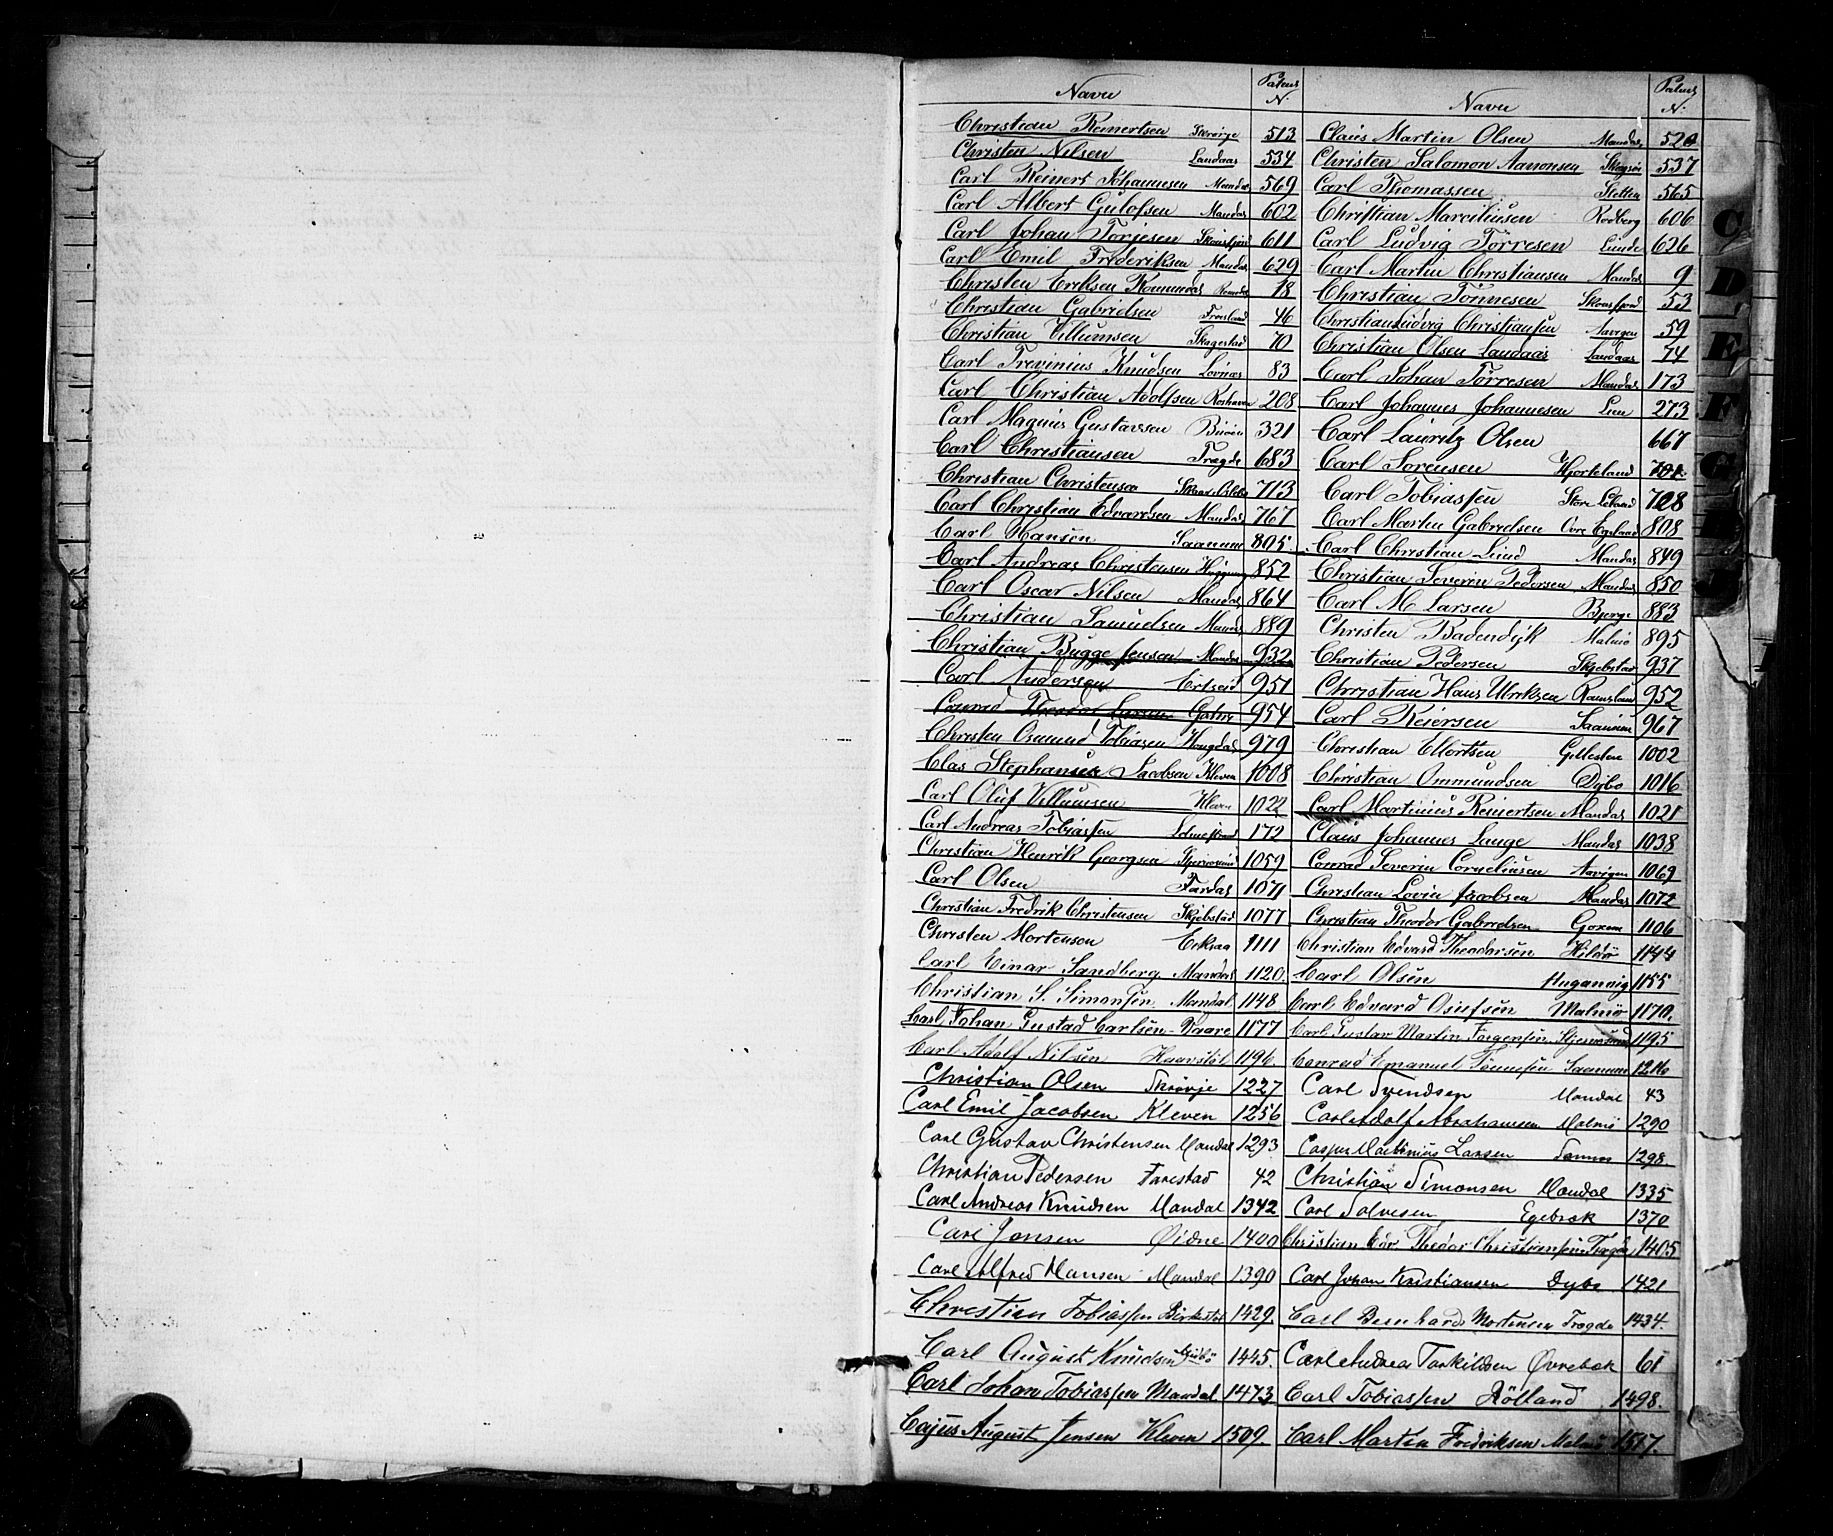 Navn Patent N. Navn Patent N.
Christian Reinertsen 513 Claus Martin Olsen Mandal 520
Christen Nilsen Landaas 534 Christen Salomon Aanonsen Skogsøi 537
Carl Reinert Johannesen Mandal 569 Carl Thomassen Sletten 565
Carl Albert Gulofsen Mandal 602 Christian Marciliusen Rodberg 606
Carl Johan Torjesen Skoisfjord 611 Carl Ludvig Tørresen Lunde 626
Carl Emil Frederiksen Mandal 629 Carl Martin Christiansen Mandal 9
Christen Eriksen 18 Christian Tönnesen 53
Christian Gabrielsen Frøisland 46 Christian Ludvig Christiansen Aavigen 59
Christian Villumsen Skagestad 70 Christian Olsen Landaas Landaas 74
Carl Trevinius Knudsen Lovnæs 83 Carl Johan Tørresen Mandal 173
Carl Christian Adolfsen Risshaven 208 Carl Johannes Johannesen Lien 273
Carl Magnus Gustavsen 321 Carl Lauritz Olsen 667
Carl Christiansen Trægde 683 Carl Sørensen Hjorteland 701
Christian Christensen 713 Carl Tobiassen 728
Carl Christian Edvardsen Mandal 767 Carl Martin Gabrielsen Øvre Egeland 808
Carl Hansen Saanum 805 Carl Christian Lund Mandal 849
Carl Andreas Christensen 852 Christian Severin Pedersen Mandal 850
Carl Oscar Nilsen Mandal 864 Carl M Larsen Bjerge 883
Christian Samuelsen Mandal 889 Christen Badendijk Malmø 895
Christian Bugge Jensen Mandal 932 Christian Pedersen Skjebstad 937
Carl Andersen Ertseid 951 Christian Hans Ulriksen Ramsland 952
Conrad Theodor Larsen 954 Carl Reiersen Saanum 967
Christen Osmund Tobiasen Hougdal 979 Christian Ellertsen Gillesten 1002
Clas Stephansen Jacobsen Kleven 1008 Christian Ommundsen Dybo 1016
Carl Oluf Villumsen Kleven 1022 Carl Martinius Reinertsen Mandal 1021
Carl Andreas Tobiassen 172 Claus Johannes Lange Mandal 1038
Christian Henrik Georgsen Hjernøsund 1059 Conrad Severin Corneliusen Aavigen 1069
Carl Olsen Fardal 1071 Christian Lovin Jacobsen Mandal 1072
Christian Fredrik Christensen Skjebstad 1077 Christian Theodor Gabrielsen 1106
Christen Mortensen Eeksaa 1111 Christian Edvard Theodorsen Hildø 1144
Carl Einar Sandberg Mandal 1120 Carl Olsen 1155
Christian S. Simonsen Mandal 1148 Carl Edvard Osufsen Malmø 1170
Carl Johan Gustad Carlsen Naare 1177 Carl Gustav Martin Jørgensen Hjernøsund 1195
Carl Adolf Nilsen Haarstøl 1196 Conrad Emanuel Tønnesen Saanum 1216
Christian Olsen Skrøvje 1227 Carl Svendsen Mandal 43
Carl Emil Jacobsen Kleven 1256 Carl Adolf Abrahamsen Malmø 1290
Carl Gustav Christensen Mandal 1293 Casper Martinius Larsen 1298
Christian Pedersen Farestad 42 Christian Simonsen Mandal 1335
Carl Andreas Knudsen Mandal 1342 Carl Salvesen Egebræk 1370
Carl Jensen Øidne 1400 Christian Edv. Thedor Christiansen Trægde 1405
Carl Alfred Hansen Mandal 1390 Carl Johan Kristiansen Dybo 1421
Christian Tobiassen Birkestøl 1429 Carl Bernhard Mortensen Trægde 1434
Carl August Knudsen 1445 Carl Andrea Tarkildsen Øvrebæk 61
Carl Johan Tobiassen Mandal 1473 Carl Tobiassen Rötland 1498
Cajus August Jensen Kleven 1509 Carl Martin Fredriksen Malmø 1517
C
D
E
F
G